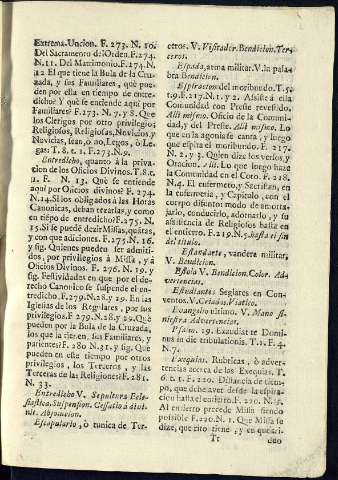 Extrema-Uncion. F. 273. N. 10.
Del Sacramento del Orden. F. 274.
N. 11. Del Matrimonio. F. 274. N.
12 El que tiene la Bula de la Cru-
zada, y sus Familiares, què pue-
den por ella en tiempo de entre-
dicho? Y què se entiende aqui por
Familiares? F. 273. N. 7. y 8. Que
los Clerigos por otro privilegio
Religiosos, Religiosas, Novicios, y
Novicias, sean, ò no, Legos, ò Le-
gas? T. 8. c. 1. F. 273. N. 9.
Entredicho, quanto à la priva-
cion de los Oficios Divinos. T. 8. c.
11. F. N. 13. Què se entiende
aqui por Oficios divinos? F. 274.
N. 14. Si los obligados à las Horas
Canonicas, deban rezarlas, y como
en tiẽpo de entredicho? F. 275. N.
15. Si se puede dezir Missa, quãtas,
y con que adiciones. F. 275. N. 16.
y sig. Quienes pueden ser admiti-
dos, por privilegios à Missa, y à
Oficios Divinos. F. 276. N. 19. y
sig. Festividades en que por el de-
recho Canonico se suspende el en-
tredicho. F. 279. N. 28. y 29. En las
Iglesias de los Regulares, por sus
privilegios. F. 279. N. 28. y 29. Què
pueden por la Bula de la Cruzada,
los que la tienen, sus Familiares, y
parientes? F. 280 N. 31. y sig. Que
pueden en este tiempo por otros
privilegios, los Terceros, y las
Terceras de las Religiones? F. 281.
N. 33.
Entredicho V. Sepultura Ecle-
siastica. Suspension. Cessatio à divi-
nis. Absolucion.
Escapulario, ò tunica de Ter-
ceros. V. Visitador. Bendicion. Ter-
ceros.
Espada, arma militar. V. la pala-
bra Bendicion.
Espiracion del moribundo. T. 5.
t. 9. F. 217. N. 1. y 2. Assiste à ella
Comunidad con Preste revestido.
Alli mismo. Oficio de la Comuni-
dad, y del Preste. Alli mismo. Lo
que en la agonia se canta, y luego
que espira el moribundo. F. 217.
N. 2. y 3. Quien dize los versos, y
Oracion. Alli. Lo que luego haze
la Comunidad en el Coro. F. 218.
N. 4. El enfermero, y Sacristan, en
la enfermeria, y Capitulo, con el
cuerpo difunto: modo de amorta-
jarlo, conducirlo, adornarlo, y su
assistencia de Religiosos hasta en
el entierro. F. 219. N. 5. hasta el fin
del titulo.
Estandarte, vandera militar.
V. Bendicion.
Estola V. Bendicion. Color. Ad-
vertencias.
Estudiantes Seglares en Con-
ventos. V. Criados. Viatico.
Evangelio ultimo. V. Mano si-
niestra Advertencias.
Psam. 19. Exaudiat te Domi-
nus in die tribulationis. T. 1. F. 4.
N. 7.
Exequias. Rubricas, ò adver-
tencias acerca de las Exequias. T.
6. t. 1. F. 220. Distancia de tiem-
po, que debe aver desde la espira-
cion hasta el entierro. F. 220. N. 5.
Al entierro precede Missa siendo
possible F. 220. N. 1. Que Missa se
dize, que rito tiene, y en què dia:
Tt duo